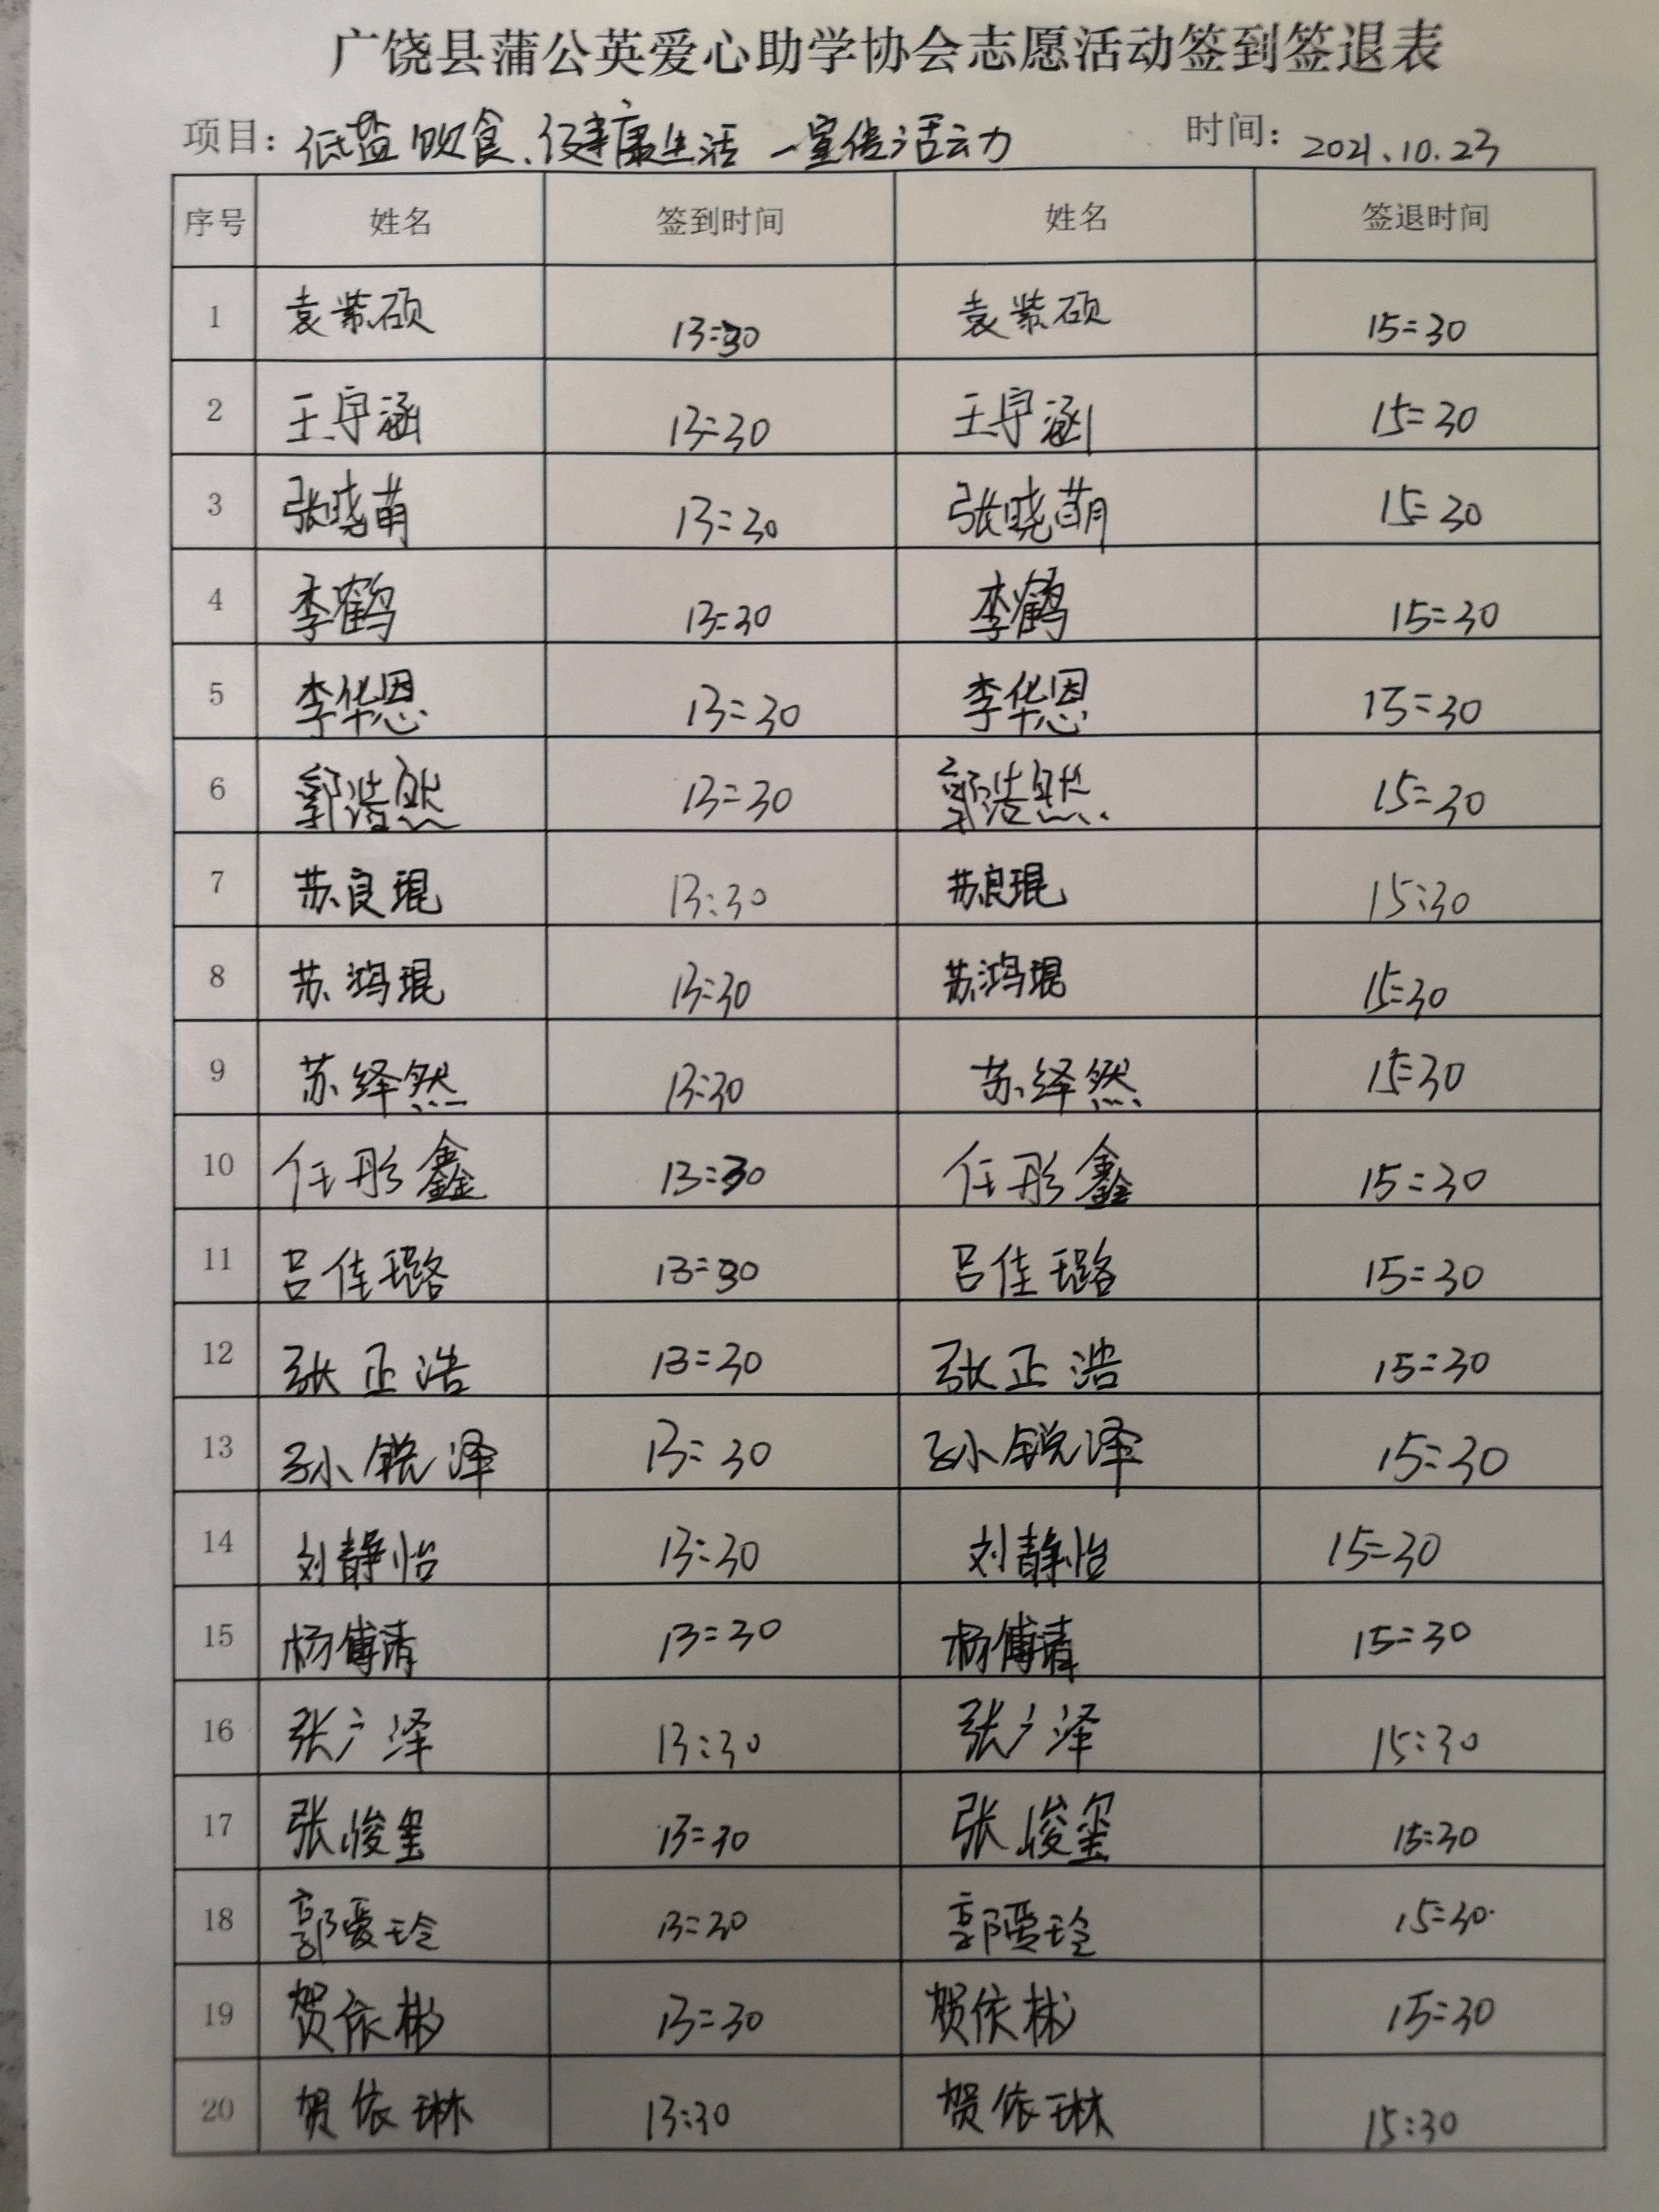 广饶县蒲公英爱心助学协会志愿活动签到签退表
项目：低盐饮食、健康生活 一宣传活动 时间：2021.10.23
序号 姓名 签到时间 姓名 签退时间
1 袁紫硕 13:30 袁紫硕 15:30
2 王宇涵 13:30 王宇涵 15:30
3 张晓萌 13:30 张晓萌 15:30
4 李鹤 13:30 李鹤 15:30
5 李华恩 13:30 李华恩 15:30
6 郭浩然 13:30 郭浩然 15:30
7 苏良琨 13:30 苏良琨 15:30
8 苏鸿琨 13:30 苏鸿琨 15:30
9 苏绎然 13:30 苏绎然 15:30
10 任彤鑫 13:30 任彤鑫 15:30
11 吕佳璐 13:30 吕佳璐 15:30
12 张正浩 13:30 张正浩 15:30
13 孙锐泽 13:30 孙锐泽 15:30
14 刘静怡 13:30 刘静怡 15:30
15 杨傅清 13:30 杨傅清 15:30
16 张广泽 13:30 张广泽 15:30
17 张峻玺 13:30 张峻玺 15:30
18 郭爱玲 13:30 郭爱玲 15:30
19 贺依彬 13:30 贺依彬 15:30
20 贺依琳 13:30 贺依琳 15:30